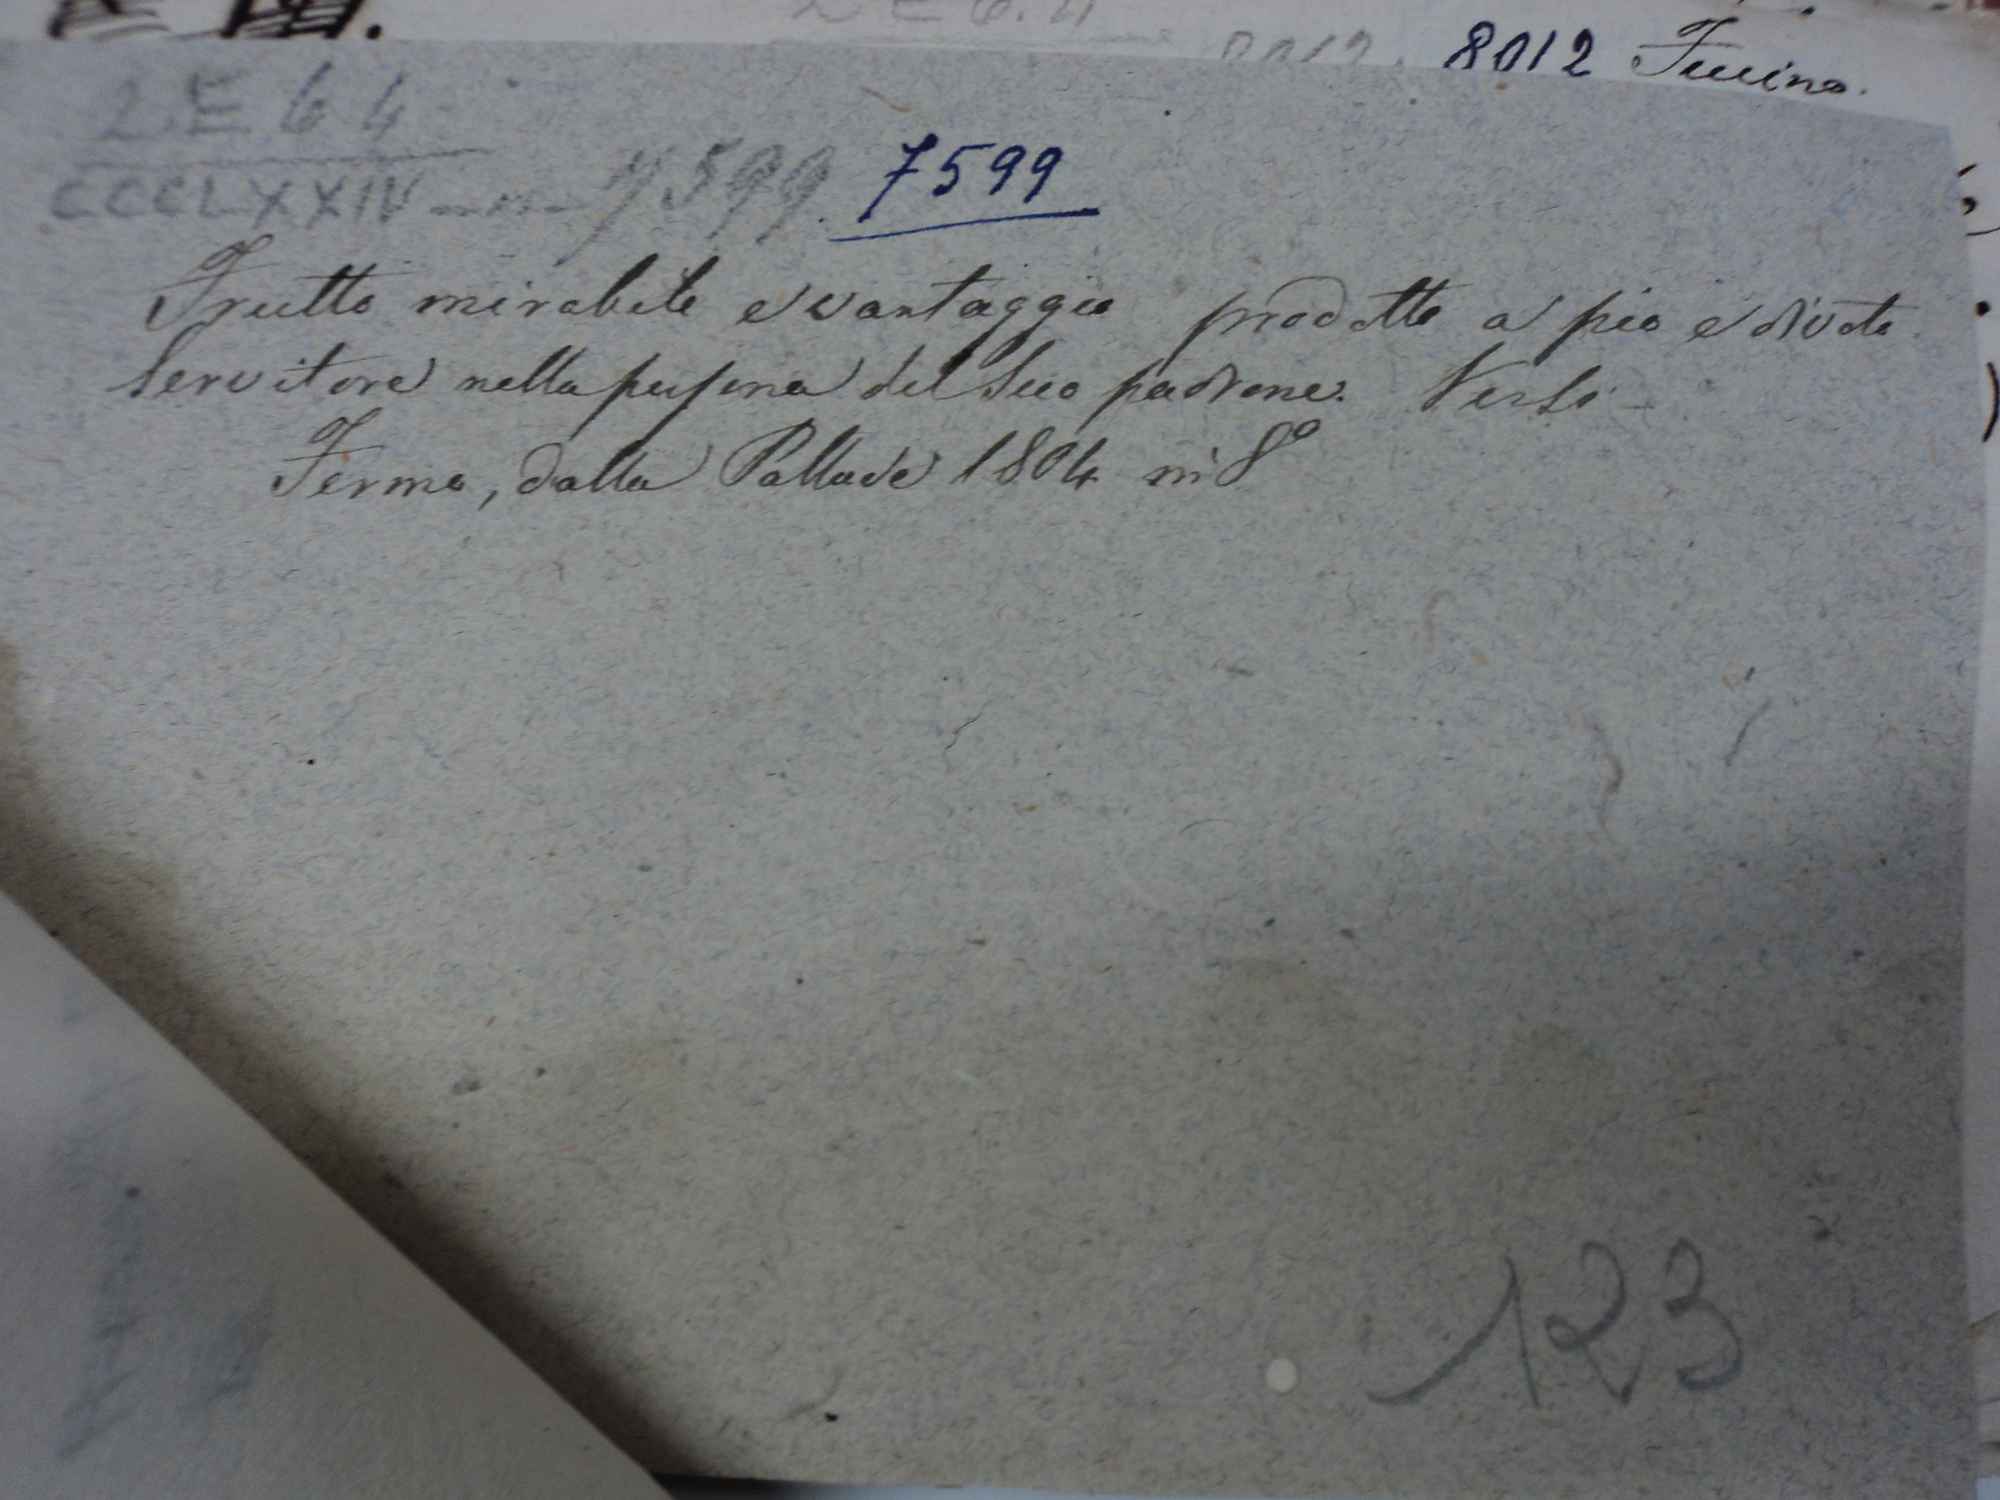 8012 Fucino.
2 E 6 4
CCCLXXIV 7599 7599
Frutto mirabile e vantaggio prodotto a pio e divoto
Servitore nella persona del Suo padrone. Versi
Fermo, dalla Pallade 1804 in 8°
123